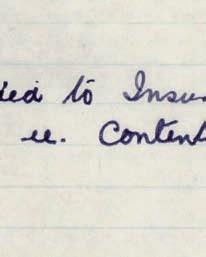 ded to Insu
ie. Content